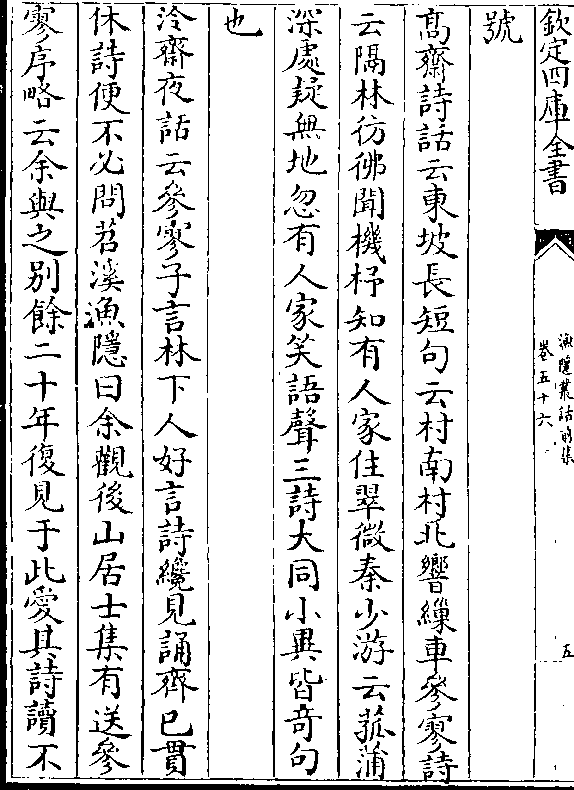 欽定四庫全書
漁隱叢話前集
卷五十六
五
號
髙齋詩話云東坡長短句云村南村北響繅車參寥詩
云隔林彷彿聞機杼知有人家住翠微秦少游云菰蒲
深處疑無地忽有人家笑語聲三詩大同小異皆竒句
也
冷齋夜話云參寥子言林下人好言詩纔見誦齊已貫
休詩便不必問苕溪漁隱曰余觀後山居士集有送參
寥序略云余與之别餘二十年復見于此愛其詩讀不